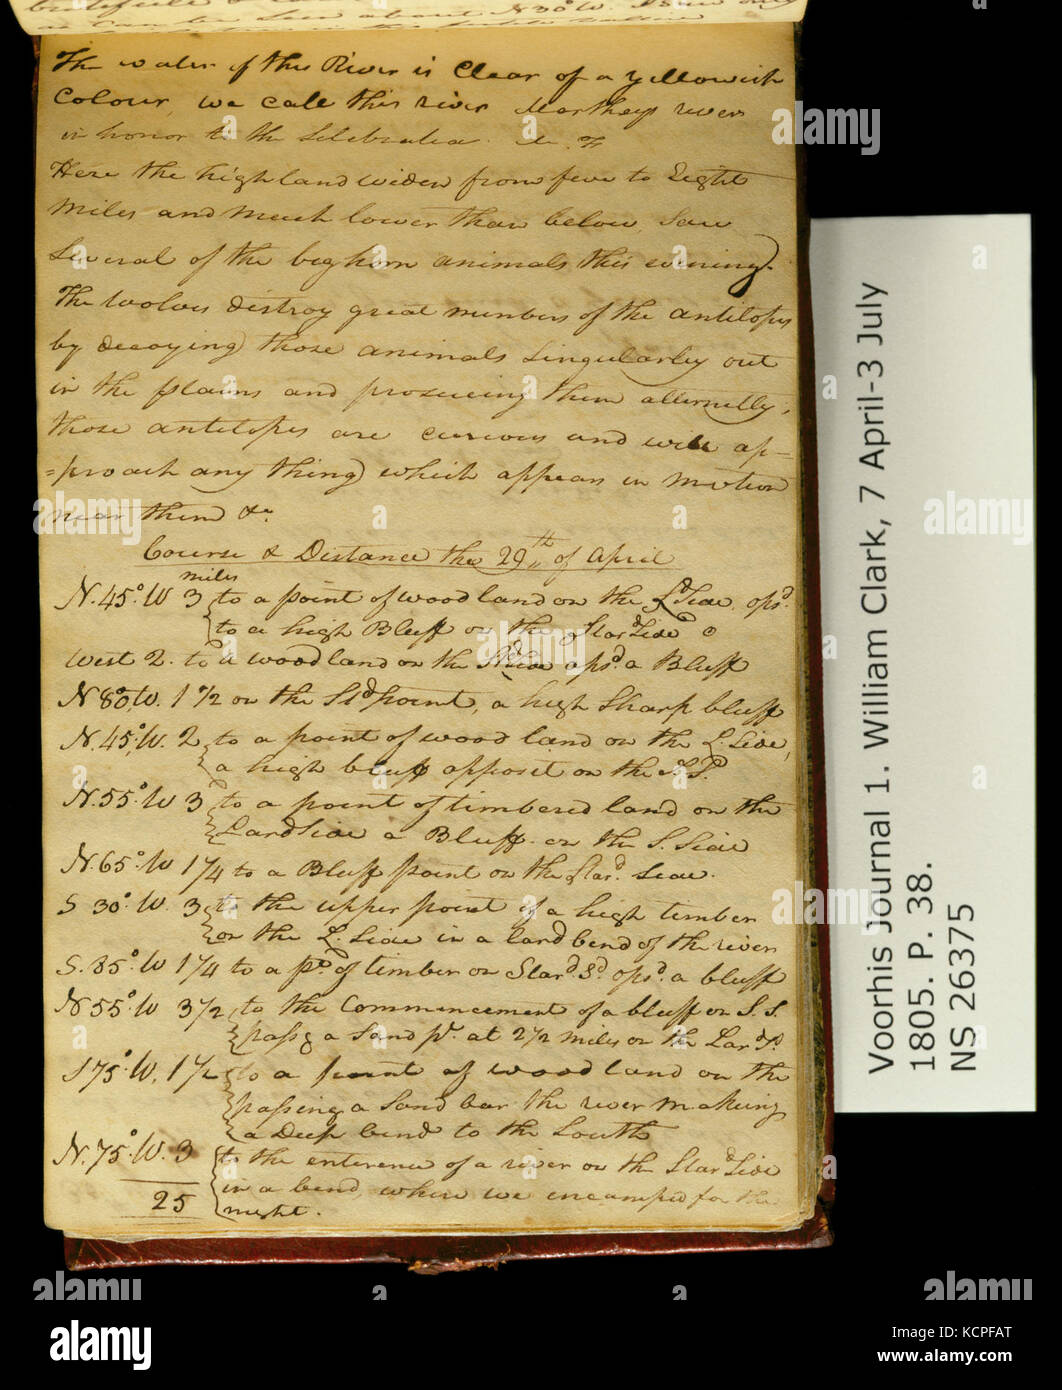 The water of this River is Clear of a yellowish
Colour, we call this river Martheys river
in honor to the Selebrated M. F
Here the high land widen from five to Eight
miles and much lower than below, Saw
Several of the big horn animals this evening.
The Wolves distroy great numbers of the antilopes
by decoying those animals Singularley out
in the plains and prosueing them alternetly,
those antelopes are curious and will ap-
=proach any thing which appears in motion
near them &c.
Course & Distance the 29th of April
miles
N. 45° W 3 to a point of wood land on the Ld. Side, opsd.
to a high Bluff on the Stard Side
West 2. to a wood land on the Sd Side opsd. a Bluff
N 80° W. 1 1/2 on the Std point, a high Sharp bluff
N. 45° W. 2 to a point of wood land on the L. Side,
a high bluff opposit on the S. Sd.
N. 55° W 3 to a point of timbered land on the
Lard Side a Bluff on the S. Side
N. 65° W 1/4 to a Bluff point on the Stard. Side.
S 30° W. 3 to the upper point of a high timber
on the L. Side in a lard bend of the river
S. 85° W 1/4 to a pt. of timber on Stard Sd opsd. a bluff
N 55° W 3 1/2 to the Commencement of a bluff on S. S.
passg a Sand pt. at 2 1/2 miles on the Lard S.
S 75° W. 1 1/2 to a point of wood land on the
passing a Sand bar the river makeing
a Deep bend to the South
N. 75° W. 3 to the enterence of a river on the Stard Side
in a bend, where we encamped for the
25 night.
Voorhis Journal 1. William Clark, 7 April-3 July
1805. P. 38.
NS 26375
alamy
a
alamy stock photo
KCPFAT
www.alamy.com